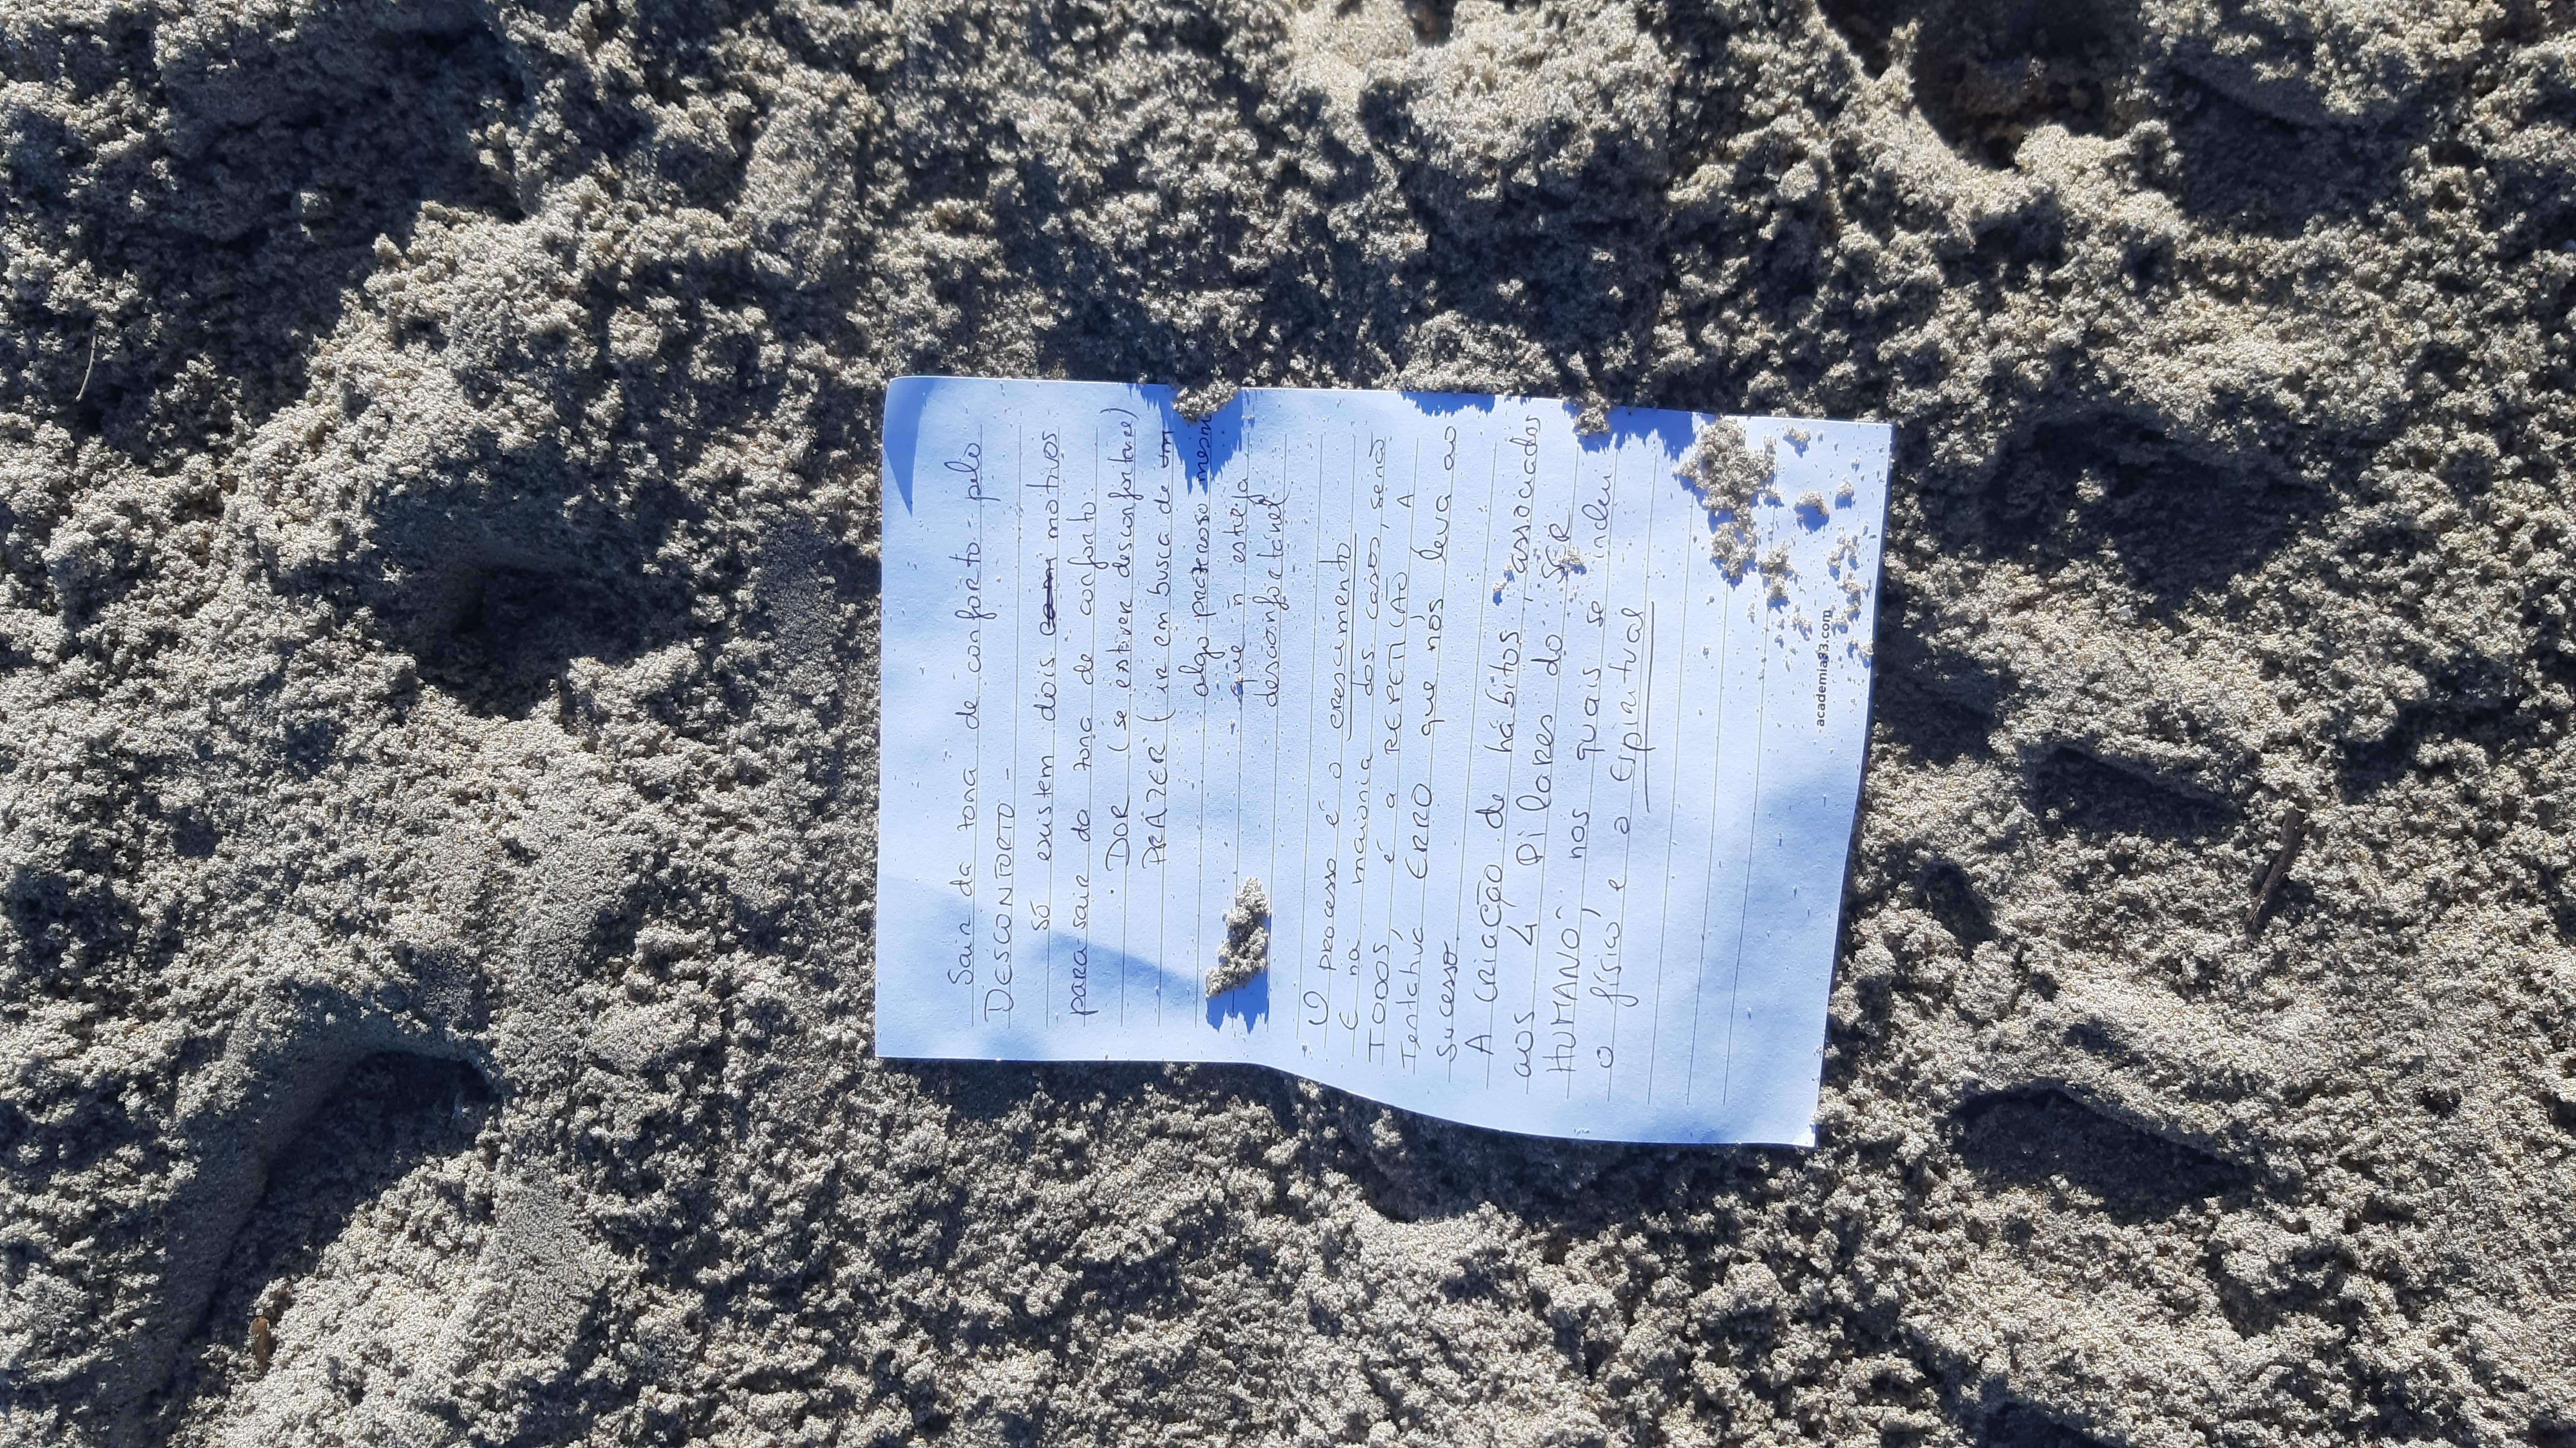 Sair da zona de conforto - pelo
DESCONFORTO -
Só existem dois motivos
para sair da zona de conforto:
· DOR (se estiver desconfortável)
PRAZER (ir em busca de um
algo prazeroso mesmo
que ñ esteja
desconfortável
O processo é o crescimento
E na maioria dos casos, senão
TODOS, é a REPETIÇÃO, A
Tentativa ERRO que nos leva ao
sucesso.
A criação de hábitos, associados
aos 4 pilares do SER
HUMANO, nos quais se inclui
o físico e o Espiritual
academia93.com